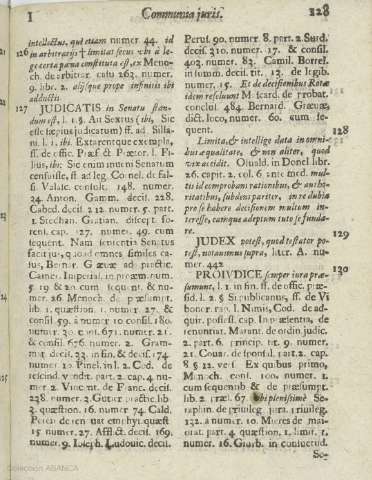 I
Communia juris.
328
intellectus, qui etiam numer. 44. id
126 in arbitrariis † limitat secus ubi à le-
ge certa pœna constituta est, ex Meno-
ch. de arbitrar. casu 263. numer.
9. libr. 2. alijsque prope infinitis ibi
adductis
127 JUDICATIS in Senatu stan-
dum est, l. 1. §. Au Senatus
esse hæc pius judicatum) ff. ad. Silla-
ni. l. 1. ibi. Extarentque exempla,
ff. de offic. Præfect. Prætor. l. Fi-
lius, ibi: Sic enim inveni Senatum
censuisse, ff. ad leg. Cornel. de fal-
s. Valasc. consult. 148. numer.
24. Anton. Gamm. decis. 228.
Cabed. decis. 212. numer. 5. part.
1. Stephan. Gratian. discept. fo-
rens. cap. 127. numer. 49. cum
sequent. Nam sententia Senatus
facit jus, quoad omnes similes ca-
sus,
Camer. Imperial. in proœm. num.
5. 19 & 20. cum sequent. & nu-
mer. 26. Menoch. de præsumpt.
lib. 1. quæstion. 1. numer. 27. &
consil. 59. à numer. 10. consil. 180.
numer. 30. consil. 671. numer. 21.
& consil. 676. numer. 2. Gram-
mat. decis. 33. in fin. & decis. 174.
numer. 10. Pinel. in l. 2. Cod. de
rescind. vendit. part. 2. cap. 4. nu-
mer. 2. Vincent. de Franc. decis.
238. numer. 3. Gutier. practic. lib.
3. quæstion. 16. numer. 74. Cald.
Pereir. de renovat. emphyt. quæst.
15. numer. 27. Afflict. decis. 169.
numer. 9. Joseph. Ludovic. decis.
Perus. 90. numer. 8. part. 2. Surd.
decis. 310. numer. 17. & consil.
403. numer. 83. Camil. Borrel.
in summ. decis. tit. 12. de legib.
numer. 15. Et de decisionibus Rotæ
idem resolvunt Mascard. de probat.
conclus. 484. Bernard. Græuæ,
dict. loco, numer. 60. cum se-
quent.
128
Limita, & intellige data in omni-
bus æqualitate, & non aliter, quod
vix accidit. Osuald. in Donel. libr.
26. capit. 2. col. 6. ante med. mul-
tis id comprobans rationibus, & autho-
ritatibus, subdens pariter, in re dubia
pro se habere decisionem multum in-
teresse, eamque adeptum tuto se funda-
re.
129
JUDEX potest, quod testator po-
test, notavimus supra, liter. A. nu-
mer. 442.
130
PRO JUDICE semper jura præ-
sumunt, l. 1. in fin. ff. de offic. præ-
sid. l. 2. § Si publicanus, ff. de Vi
bonor. rap. l. Nimis, Cod. de ad-
quir. possess. cap. In præsentia, de
renuntiat. Marant. de ordin. judic.
2. part. 6. princip. tit. 9. numer.
21. Couar. de sponsal. part. 2. cap.
8 § 12. vers. Ex quibus primo,
Menoch. consil. 100. numer. 1.
cum sequentib & de præsumpt.
lib. 2. præs. 67. ubi plenissimè Se-
raphin. de privileg. jura. privileg.
132. à numer. 10. Mieres de ma-
iorat. part. 4. quæstion. 1. limit. 1.
numer. 16. Giurb. in consuetud.
Se-
Colección ABANCA